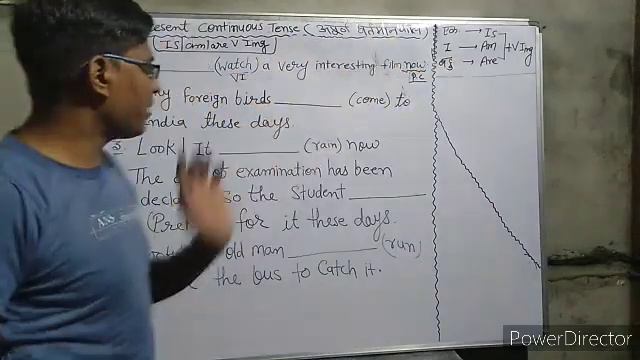 esent Continuous Tense (अपूर्ण वर्तमानकाल)
(Is am/are V Ing)
________ (watch) a very interesting film now
VI
P.C
y foreign birds ________ (come) to
India these days.
3. Look! It ________ (rain) now
The of examination has been
So the Student ________
for it these days.
old man ________ (run)
the bus to Catch it.
→ Is
I → Am
→ Are
+VIng
PowerDirector